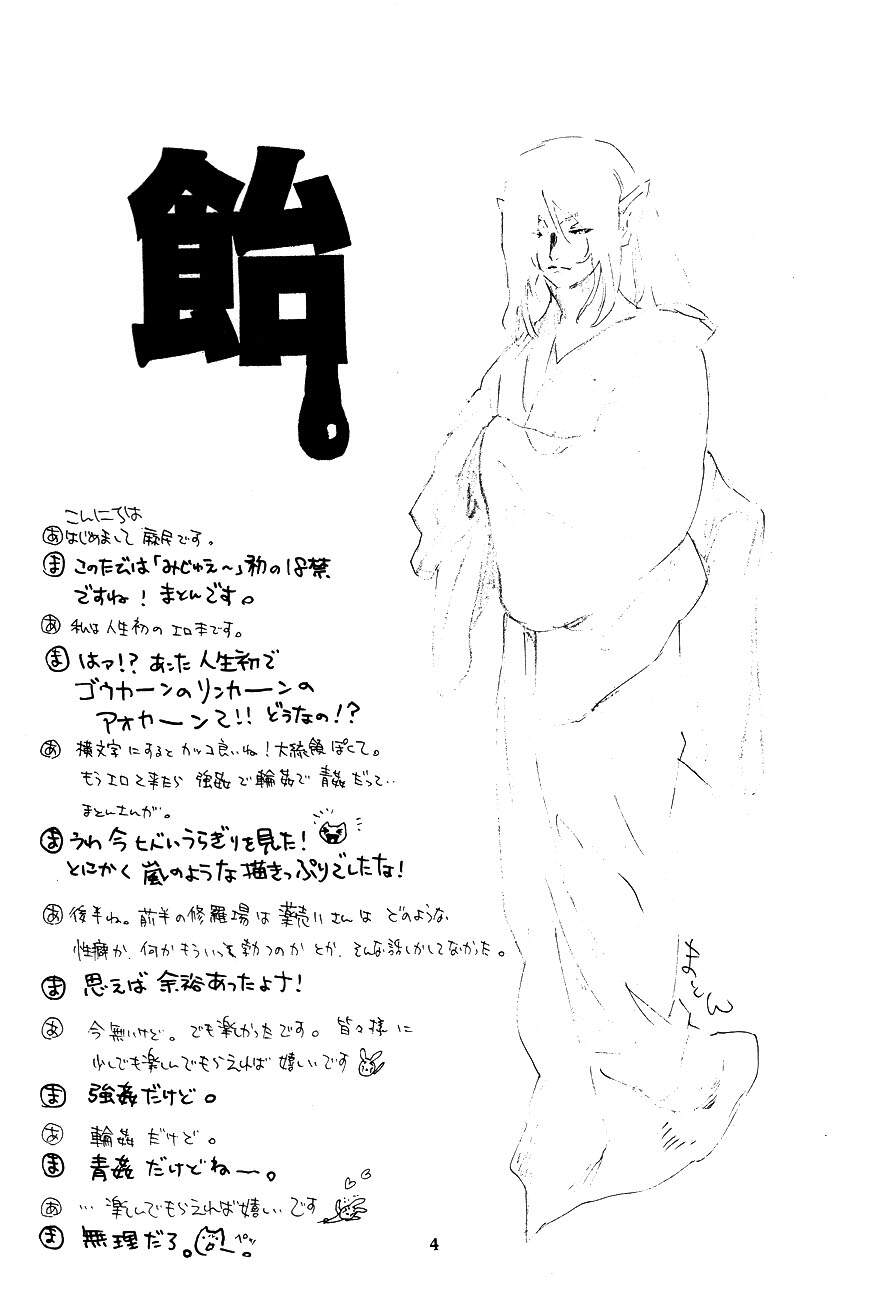 飴。
こんにちは
あ はじめまして 麻民です。
ま このたびは「みじゅえ〜」初の18禁
ですね! まとんです。
あ 私は人生初のエロ本です。
ま はァ!? あった人生初で
ゴウカーンのリンカーンの
アオカーンて!! どうなの!?
あ 横文字にするとカッコ良いね!大統領ぽくて。
もうエロて来たら 強姦で輪姦で青姦だって‥
まとんさんが。
ま うわ 今 ひどいうらぎりを見た!
とにかく嵐のような描きっぷりでしたな!
あ 後半ね。前半の修羅場は薬売りさんは どのような
性癖か、何かもういつ勃つのか とか、そんな話しかしてなかった。
ま 思えば 余裕あったよナ!
あ 今無いけど。でも楽しかったです。皆々様に
少しでも楽しんでもらえれば嬉しいです
ま 強姦だけど。
あ 輪姦だけど。
ま 青姦だけどねー。
あ … 楽しんでもらえれば嬉しいです
ま 無理だろ。 ペッ
まとん
4